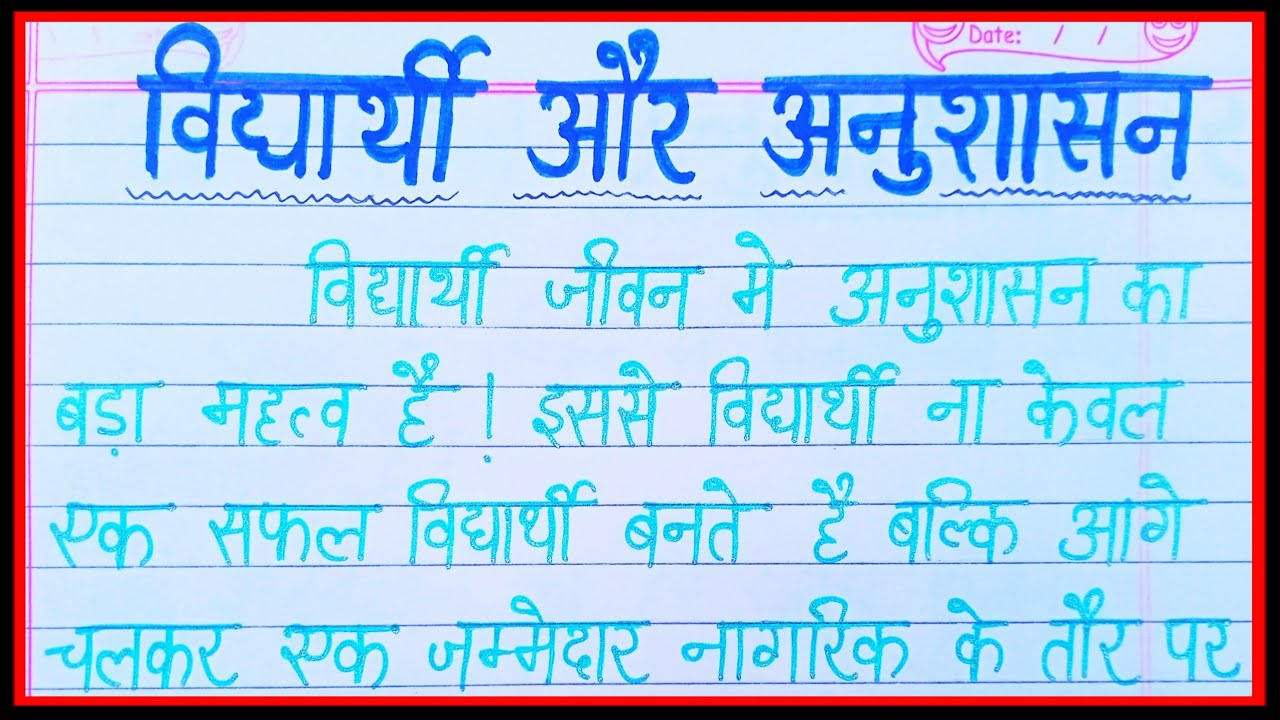 Date: / /
विद्यार्थी और अनुशासन
विद्यार्थी जीवन मे अनुशासन का
बड़ा महत्व है ! इससे विद्यार्थी ना केवल
एक सफल विद्यार्थी बनते है बल्कि आगे
चलकर एक जम्मेदार नागरिक के तौर पर